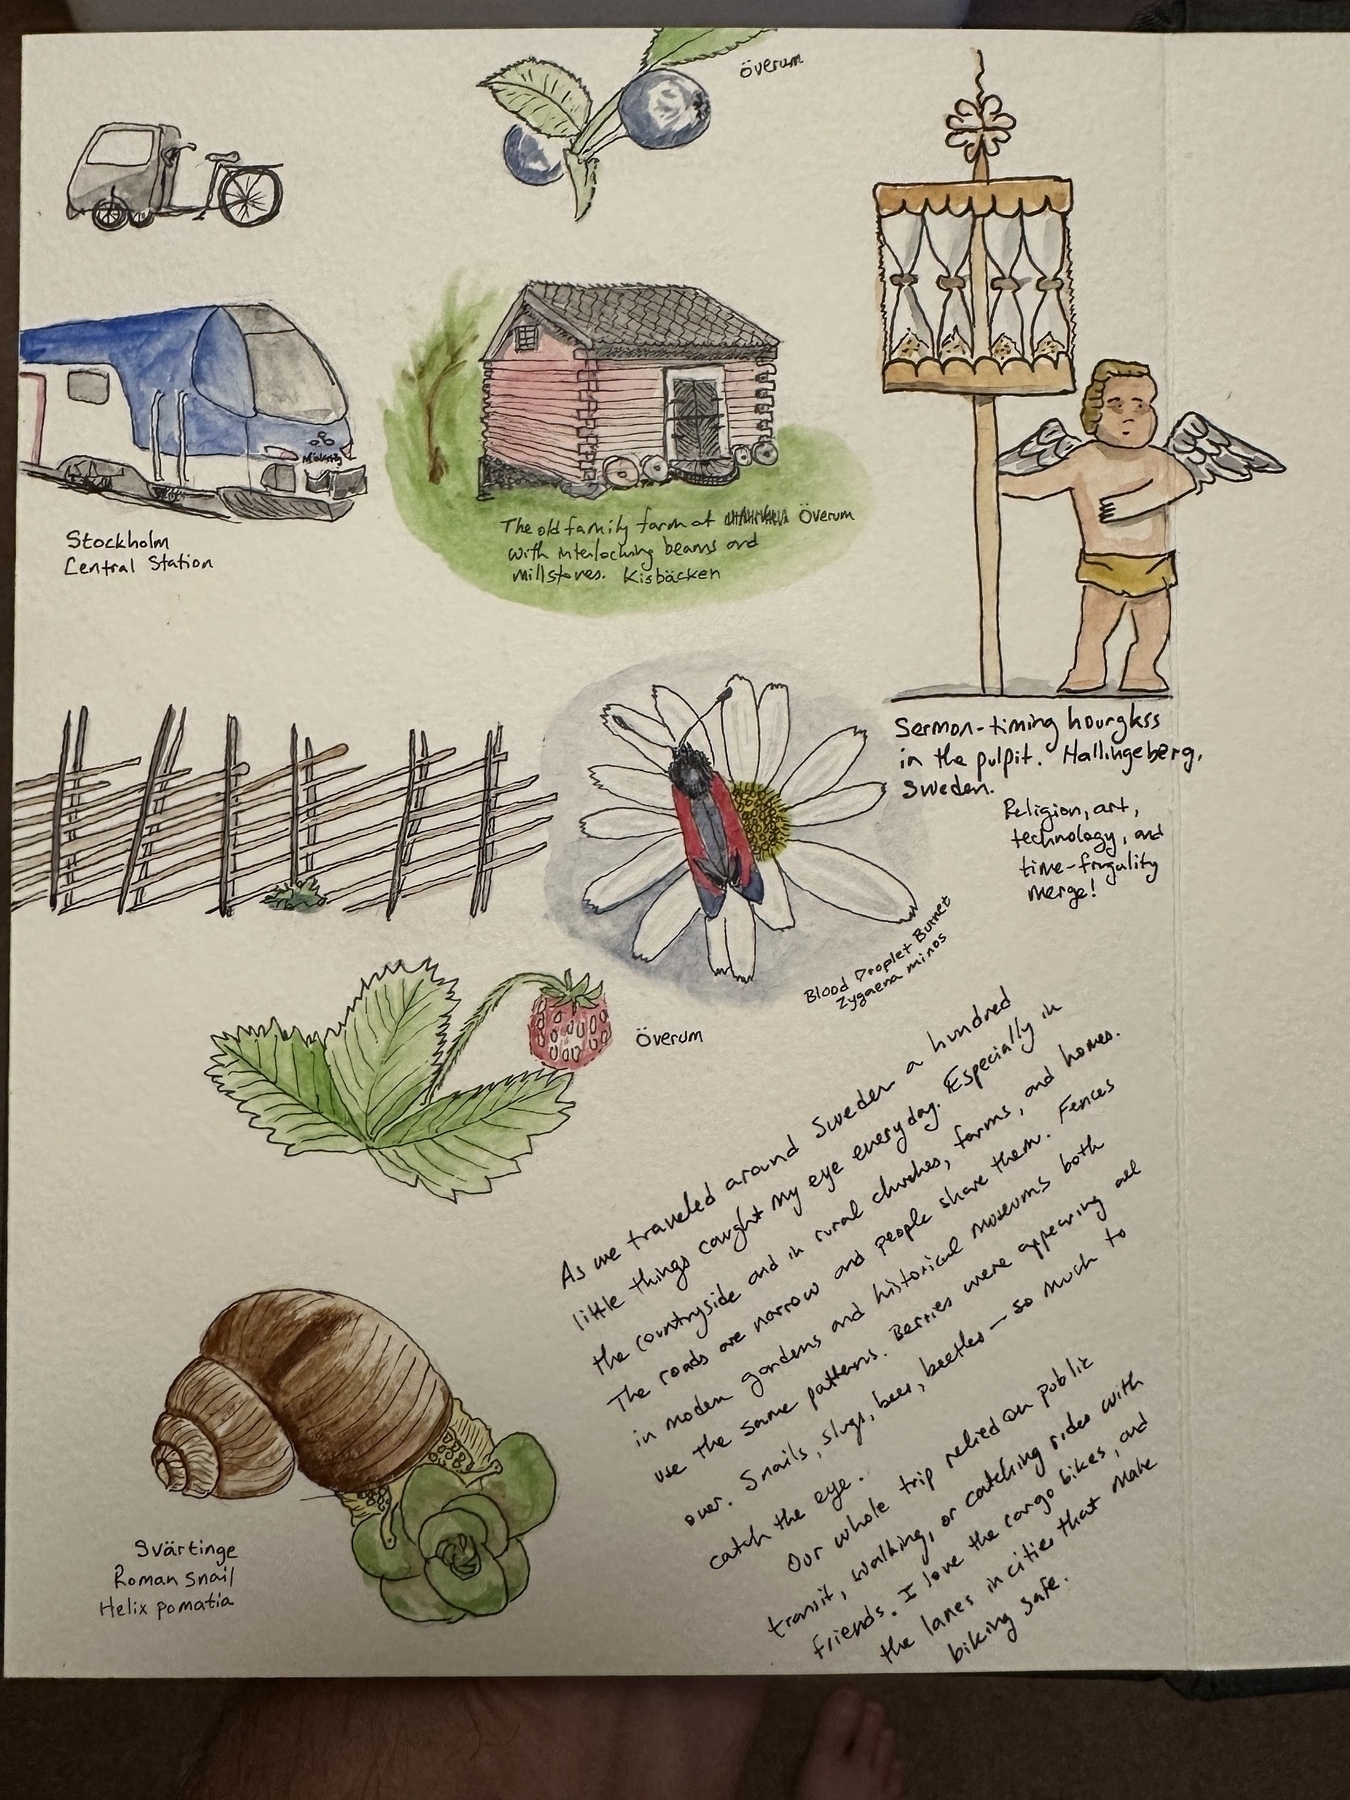 Överum
Stockholm
Central Station
The old family farm at Överum
with interlocking beams and
millstones. Kisbäcken
Sermon-timing hourglass
in the pulpit. Hallingeberg,
Sweden.
Religion, art,
technology, and
time-frugality
merge!
Blood Droplet Burnet
Zygaena minos
Överum
As we traveled around Sweden a hundred
little things caught my eye everyday. Especially in
the countryside and in rural churches, farms, and homes.
The roads are narrow and people share them. Fences
in modern gardens and historical museums both
use the same patterns. Berries were appearing all
over. Snails, slugs, bees, beetles — so much to
catch the eye.
Our whole trip relied on public
transit, walking, or catching rides with
friends. I love the cargo bikes, and
the lanes in cities that make
biking safe.
Svärtinge
Roman snail
Helix pomatia